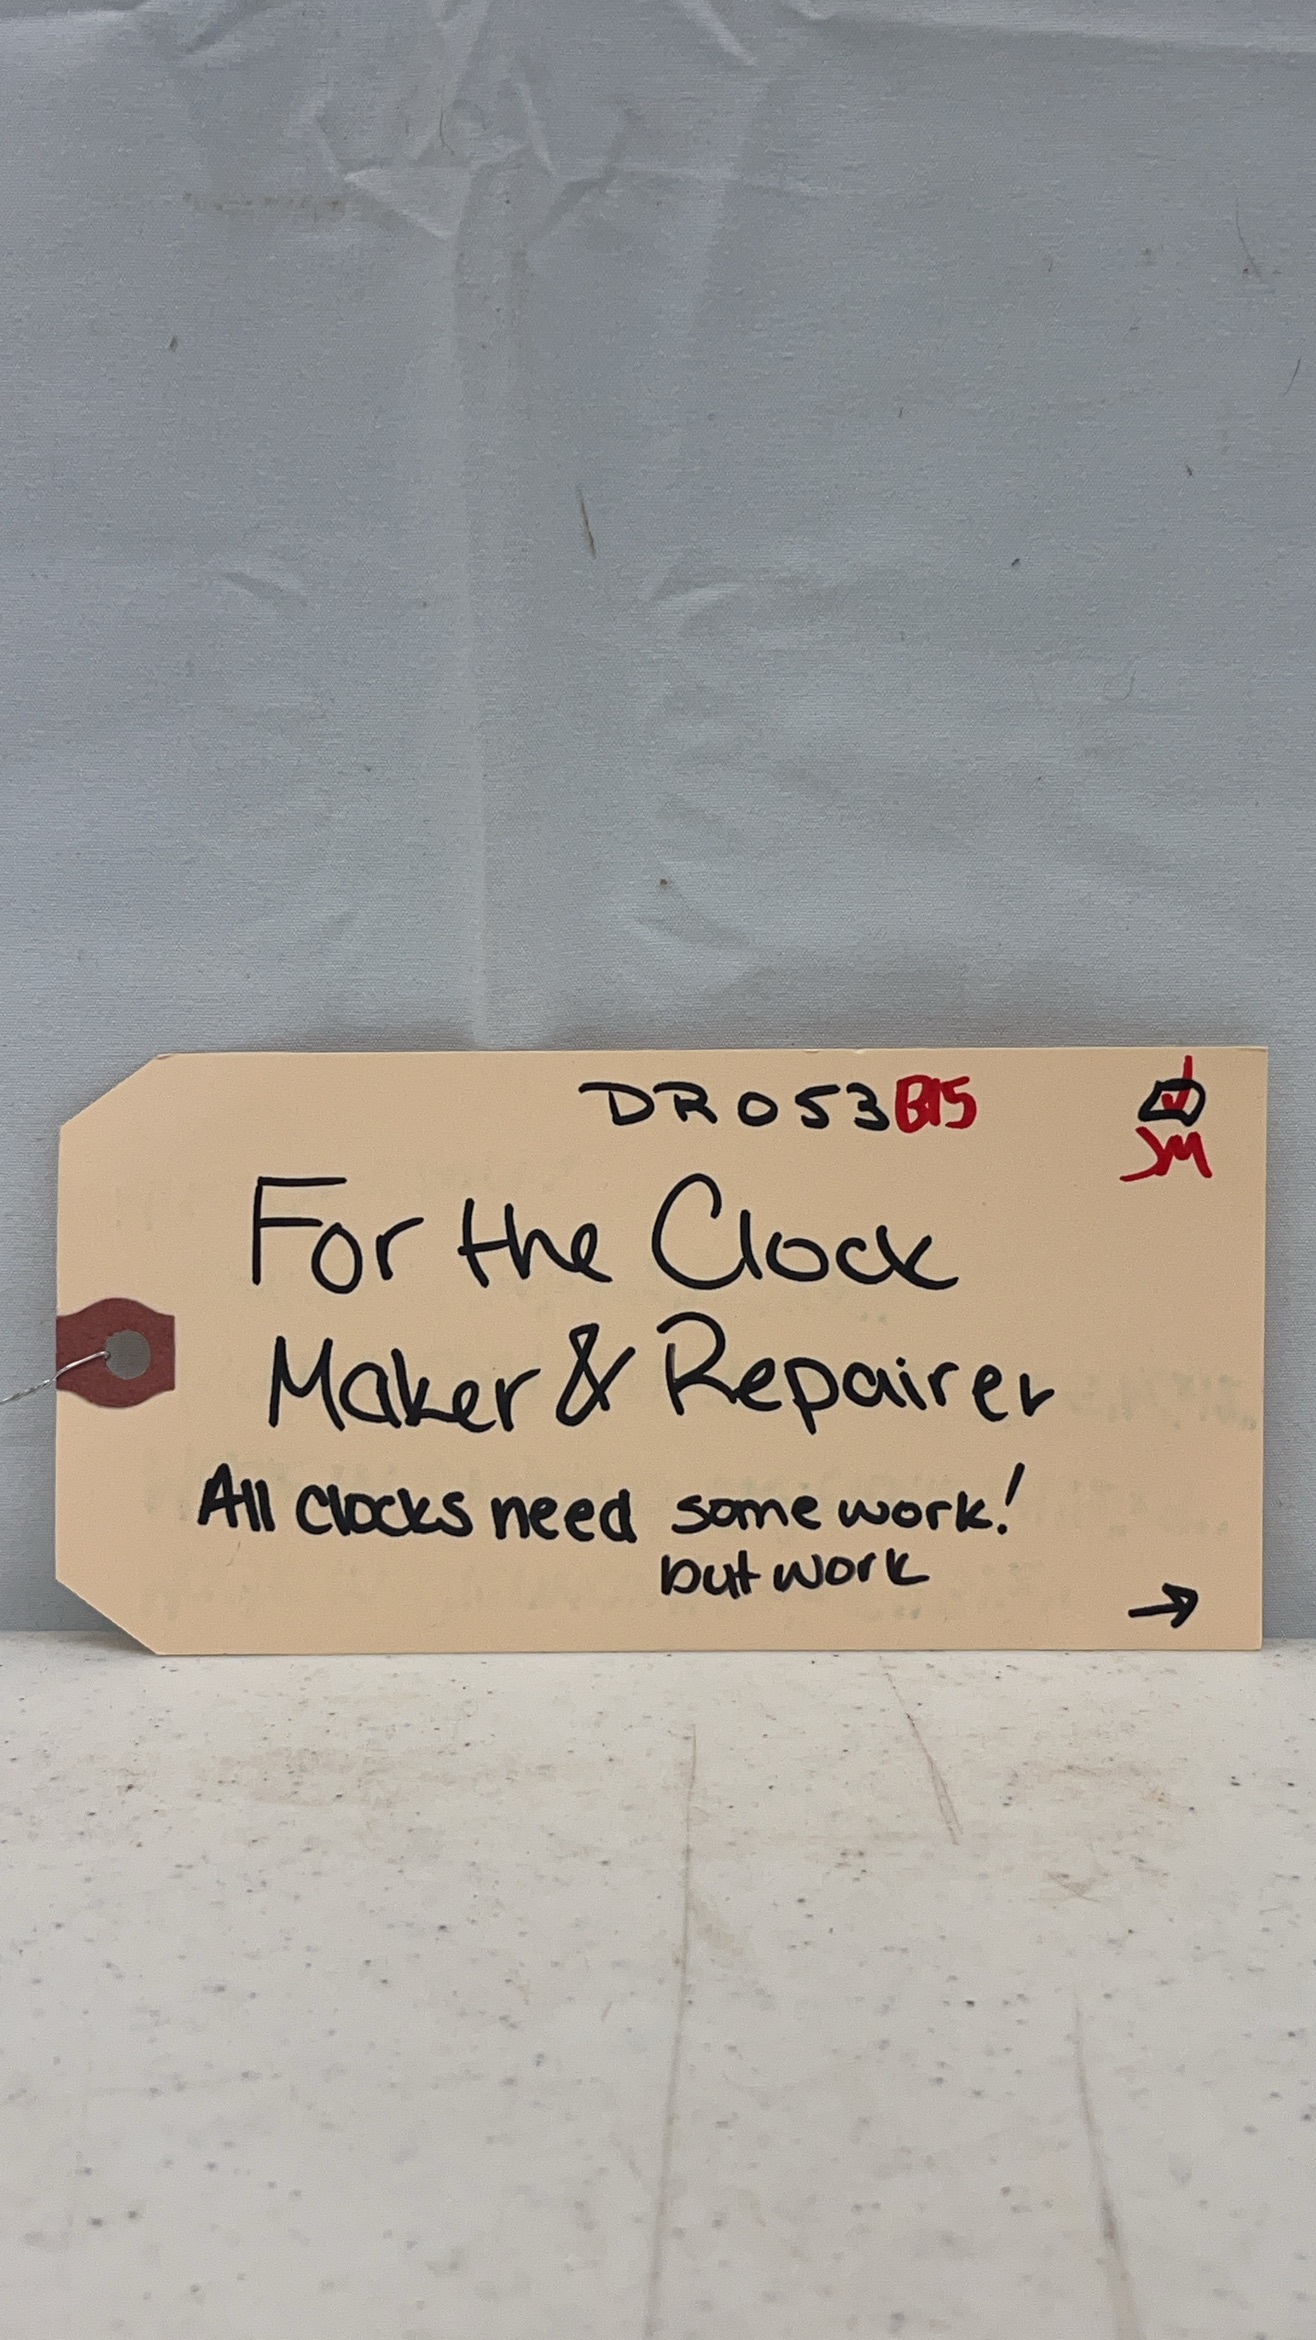 DR053B15
JM
For the Clock
Maker & Repairer
All clocks need some work!
but work
→